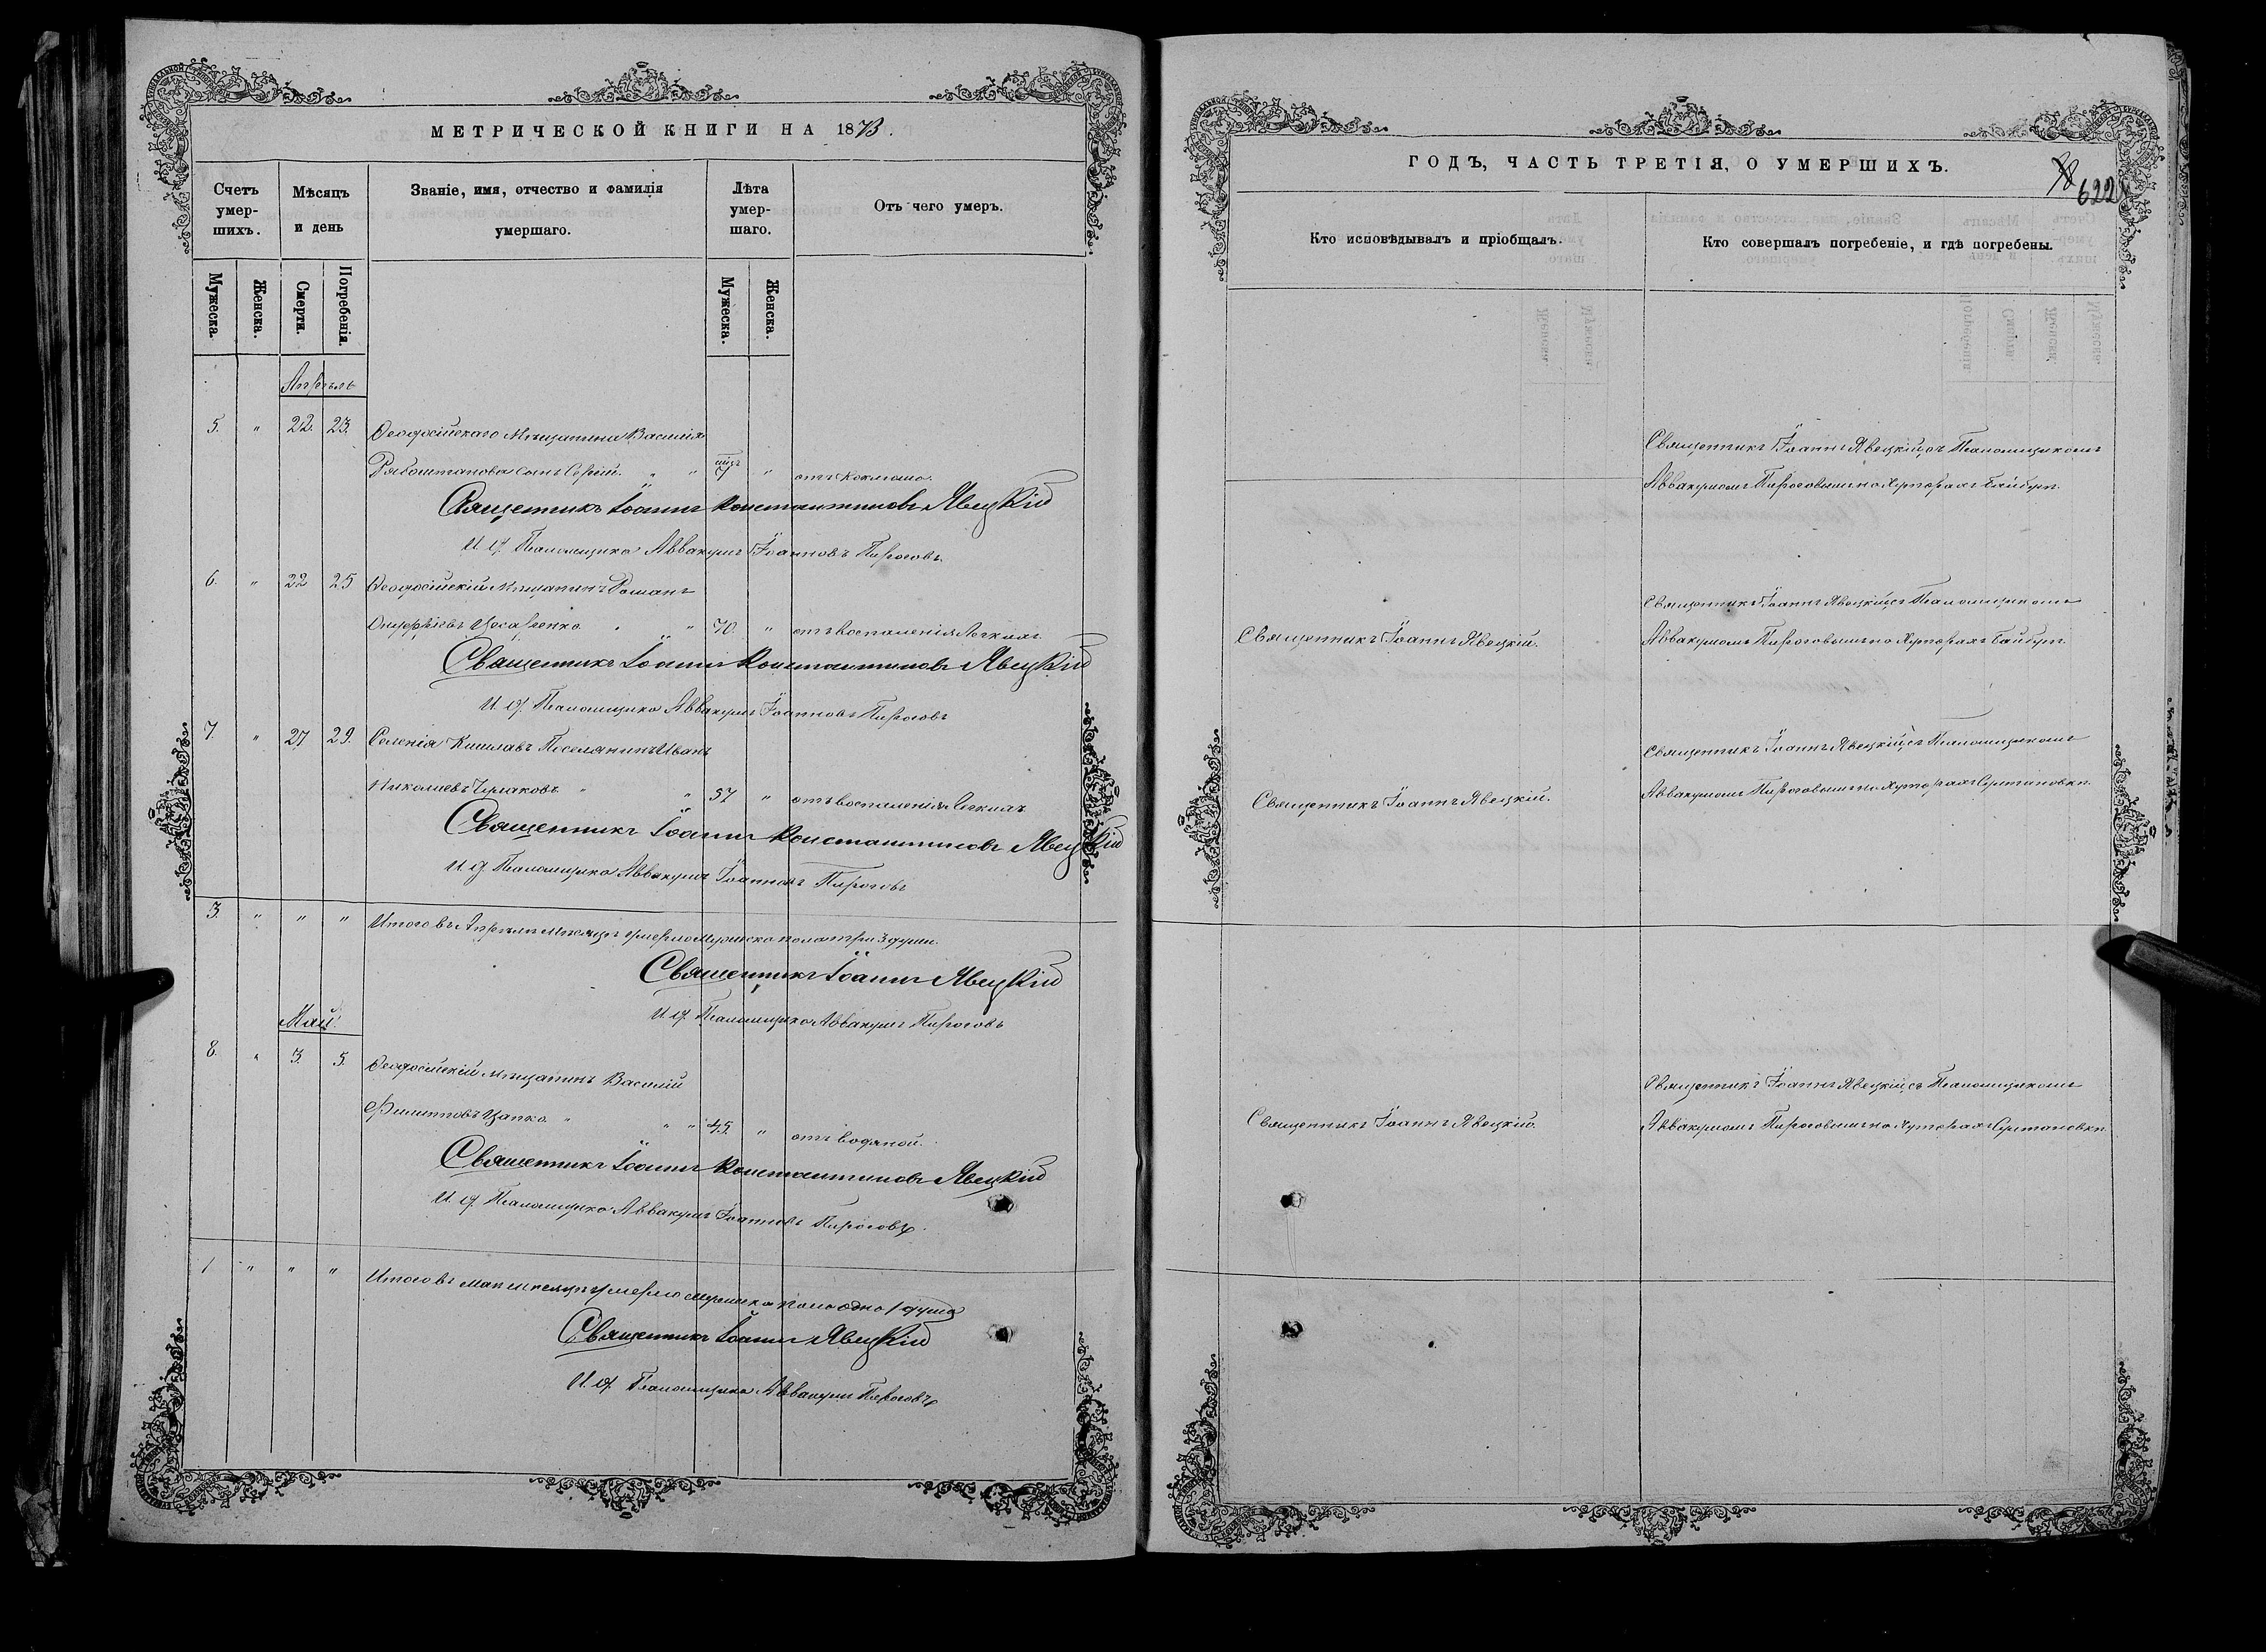 МЕТРИЧЕСКОЙ КНИГИ НА 1873.
Счетъ умер-шихъ.
Мѣсяцъ и день
Званіе, имя, отчество и фамилія умершаго.
Лѣта умер-шаго.
Отъ чего умеръ.
Мужеска.
Женска.
Смерти.
Погребенія.
Мужеска.
Женска.
Апрѣль
5. " 22. 23. Ѳеодосійскаго Мѣщанина Василія
сынъ Сергій. " " 7 " отъ коклюша.
Священникъ Іоаннъ Константиновъ Явецкій
И. д. Псаломщика Аввакумъ Іоанновъ Пироговъ.
6. " 22 25 Ѳеодосійскій Мѣщанинъ Романъ
" 70. " отъ воспаленія Легкихъ
Священникъ Іоаннъ Константиновъ Явецкій
И. д. Псаломщика Аввакумъ Іоанновъ Пироговъ
7. " 27 29. Селенія Кишлавъ Поселянинъ Иванъ
Николаевъ Чумаковъ " " 57 " отъ воспаленія Легкихъ
Священникъ Іоаннъ Константиновъ Явецкій
И. д. Псаломщика Аввакумъ Іоанновъ Пироговъ
3. " " " Итого въ Апрѣлѣ Мѣсяцѣ умерло Мужеска пола три 3 души.
Священникъ Іоаннъ Явецкій
И. д. Псаломщика Аввакумъ Пироговъ
Май.
8. " 3. 5. Ѳеодосійскій Мѣщанинъ Василій
Филипповъ Цапко " " " 45. " отъ водяной.
Священникъ Іоаннъ Константиновъ Явецкій
И. д. Псаломщика Аввакумъ Іоанновъ Пироговъ.
1 " " " Итого въ Маѣ мѣсяцѣ умерло мужеска пола одна 1 душа
Священникъ Іоаннъ Явецкій
И. д. Псаломщика Аввакумъ Пироговъ
ГОДЪ, ЧАСТЬ ТРЕТІЯ, О УМЕРШИХЪ.
622
Кто исповѣдывалъ и пріобщалъ.
Кто совершалъ погребеніе, и гдѣ погребены.
Священникъ Іоаннъ Явецкій съ Псаломщикомъ
Аввакумомъ Пироговымъ на Хуторахъ Байбуги.
Священникъ Іоаннъ Явецкій съ Псаломщикомъ
Священникъ Іоаннъ Явецкій.
Аввакумомъ Пироговымъ на Хуторахъ Байбуги.
Священникъ Іоаннъ Явецкій съ Псаломщикомъ
Священникъ Іоаннъ Явецкій.
Аввакумомъ Пироговымъ на Хуторахъ Султановки.
Священникъ Іоаннъ Явецкій съ Псаломщикомъ
Священникъ Іоаннъ Явецкій.
Аввакумомъ Пироговымъ на Хуторахъ Султановки.